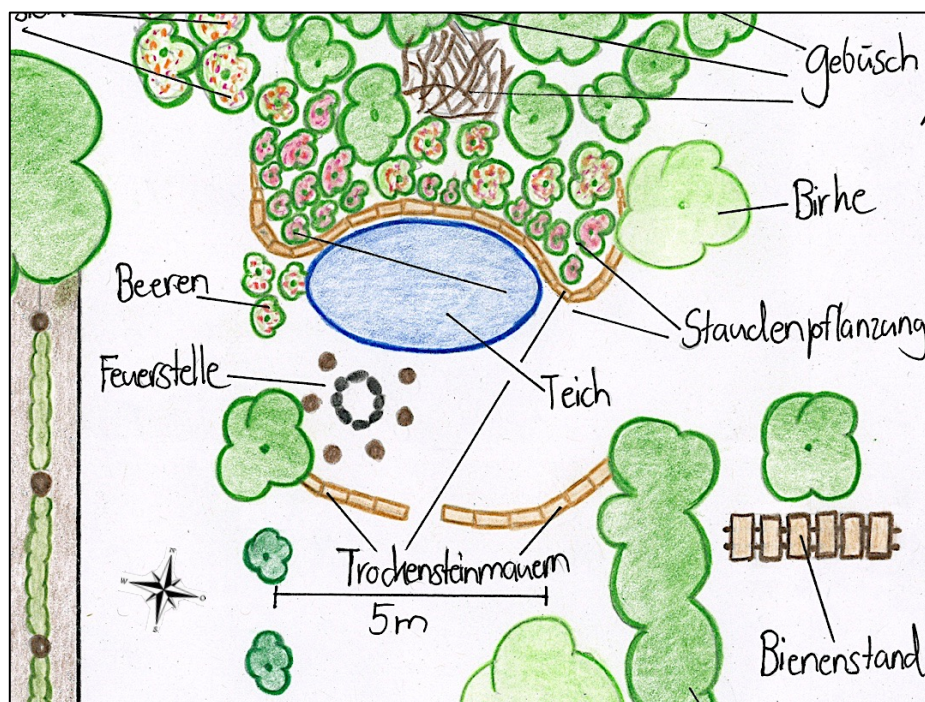 Gebüsch
Birke
Beeren
Staudenpflanzung
Feuerstelle
Teich
Trockensteinmauern
5m
Bienenstand
N
W
O
S